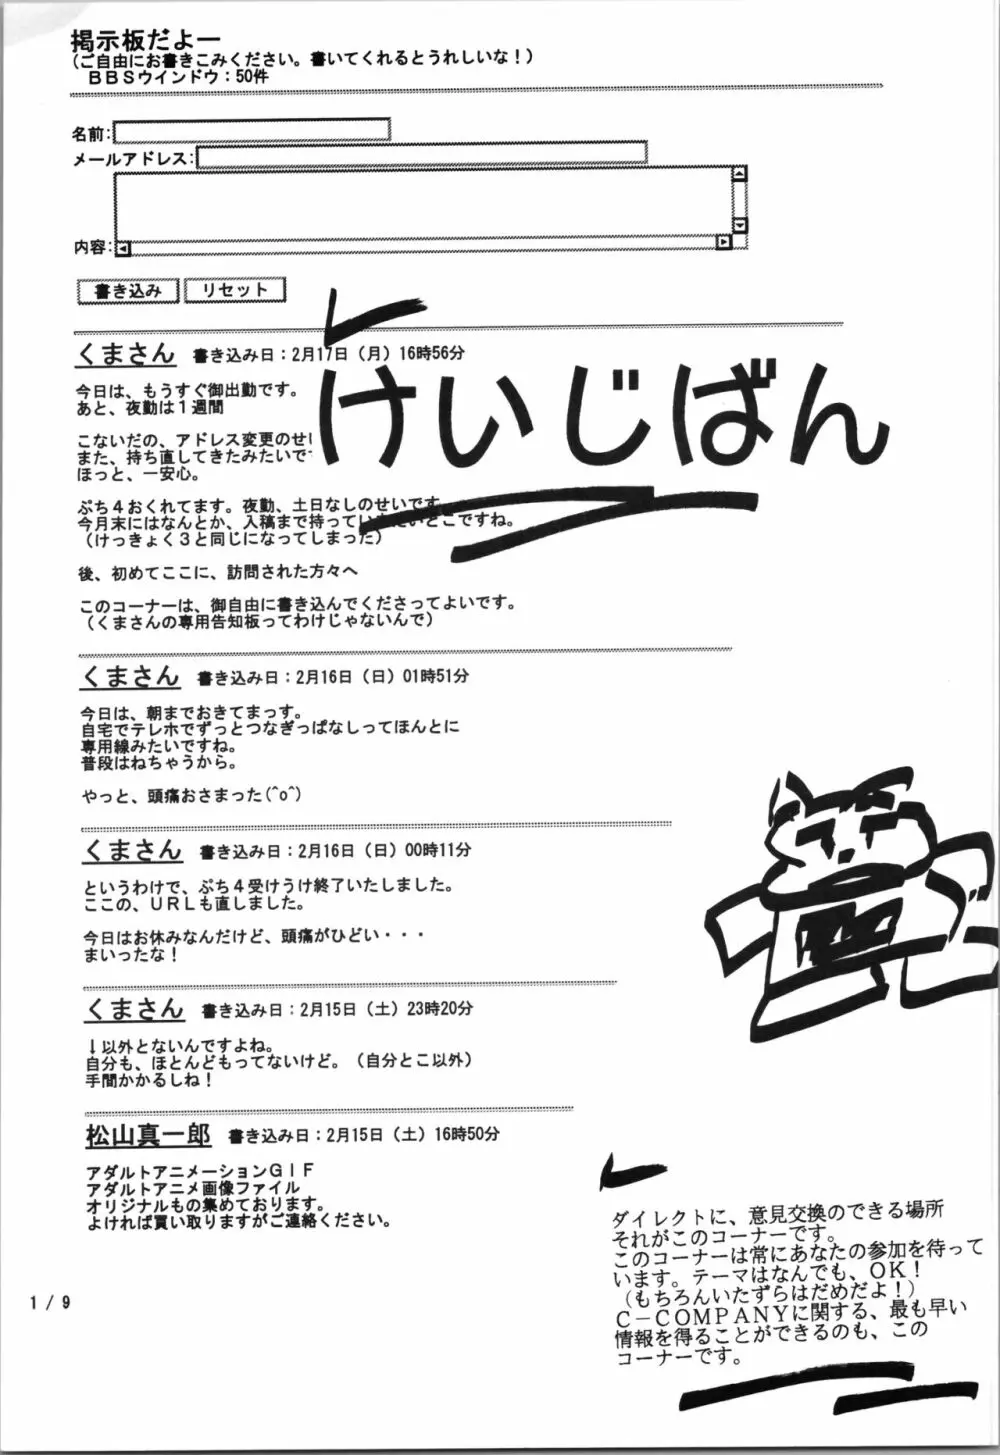 掲示板だよー
（ご自由にお書きこみください。書いてくれるとうれしいな！）
ＢＢＳウインドウ：50件
名前:
メールアドレス:
内容:
書き込み リセット
くまさん 書き込み日：2月17日（月）16時56分
けいじばん
今日は、もうすぐ御出勤です。
あと、夜勤は１週間
こないだの、アドレス変更のせい
また、持ち直してきたみたいで
ほっと、一安心。
ぷち４おくれてます。夜勤、土日なしのせいです。
今月末にはなんとか、入稿まで持っていきたいとこですね。
（けっきょく３と同じになってしまった）
後、初めてここに、訪問された方々へ
このコーナーは、御自由に書き込んでくださってよいです。
（くまさんの専用告知板ってわけじゃないんで）
くまさん 書き込み日：2月16日（日）01時51分
今日は、朝までおきてまっす。
自宅でテレホでずっとつなぎっぱなしってほんとに
専用線みたいですね。
普段はねちゃうから。
やっと、頭痛おさまった(^o^)
くまさん 書き込み日：2月16日（日）00時11分
というわけで、ぷち４受けうけ終了いたしました。
ここの、ＵＲＬも直しました。
今日はお休みなんだけど、頭痛がひどい・・・
まいったな！
くまさん 書き込み日：2月15日（土）23時20分
↓以外とないんですよね。
自分も、ほとんどもってないけど。（自分とこ以外）
手間かかるしね！
松山真一郎 書き込み日：2月15日（土）16時50分
アダルトアニメーションＧＩＦ
アダルトアニメ画像ファイル
オリジナルもの集めております。
よければ買い取りますがご連絡ください。
ダイレクトに、意見交換のできる場所
それがこのコーナーです。
このコーナーは常にあなたの参加を待って
います。テーマはなんでも、ＯＫ！
（もちろんいたずらはだめだよ！）
Ｃ－ＣＯＭＰＡＮＹに関する、最も早い
情報を得ることができるのも、この
コーナーです。
1 / 9